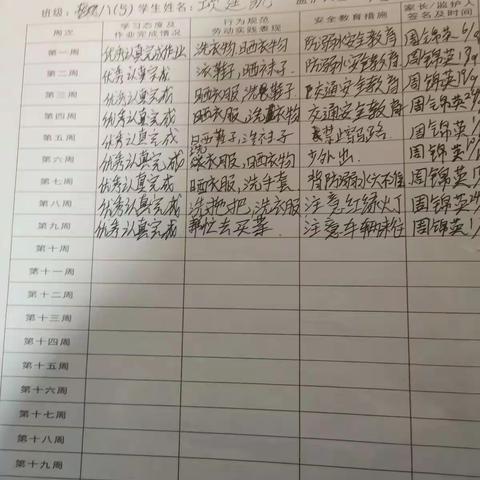 班级: 学生姓名:
周次 学习态度及作业完成情况 行为规范劳动实践表现 安全教育措施 家长/监护人签名及时间
第一周 优秀认真完成作业 洗衣物,晒衣物 防溺水安全教育 周锦英
第二周 优秀认真完成 洗鞋子,晒袜子. 防溺水安全教育 周锦英
第三周 优秀认真完成 晒衣服,洗鞋子 交通安全教育 周锦英
第四周 优秀认真完成 晒衣服,洗衣物 交通安全教育 周锦英
第五周 优秀认真完成 晒鞋子,洗袜子 周锦英
第六周 优秀认真完成 洗衣服,晒衣物 少外出. 周锦英
第七周 优秀认真完成 晒衣服,洗手套 周锦英
第八周 优秀认真完成 洗拖把,洗衣服 注意红绿灯 周锦英
第九周 优秀认真完成 帮忙去买菜. 注意车辆来往 周锦英
第十周
第十一周
第十二周
第十三周
第十四周
第十五周
第十六周
第十七周
第十八周
第十九周